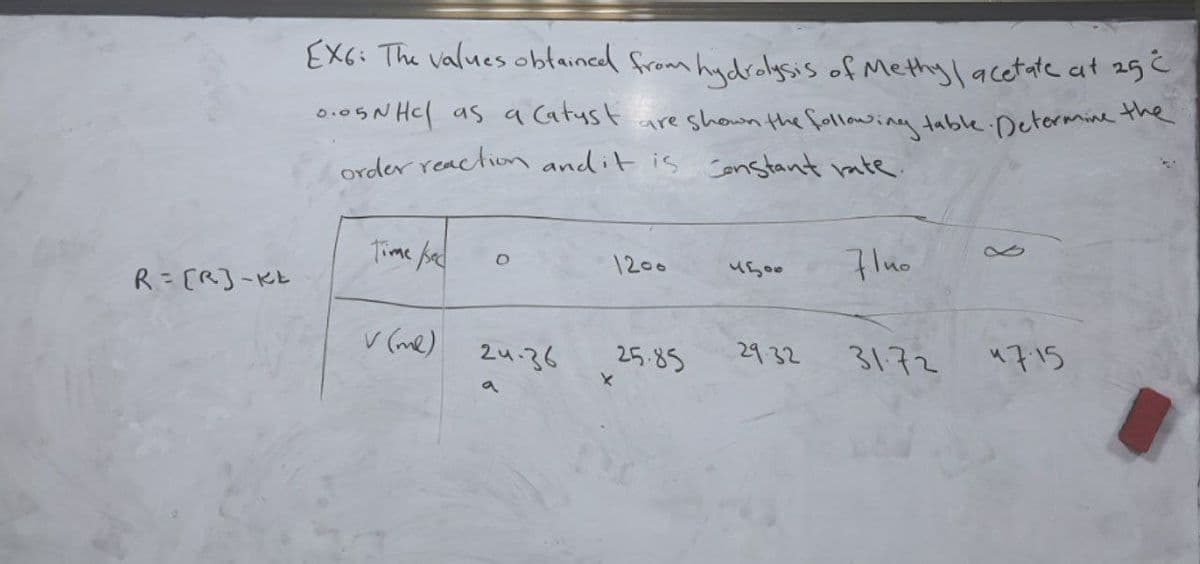 EX6: The values obtained from hydrolysis of Methyl acetate at 25 c°
0.05 N HCl as a Catyst are shown the following table. Determine the
order reaction and it is Constant rate.
R = [R] - Kt
Time/sec 0 1200 4500 7140 ∞
V (ml) 24.36 25.85 29.32 31.72 47.15
a x